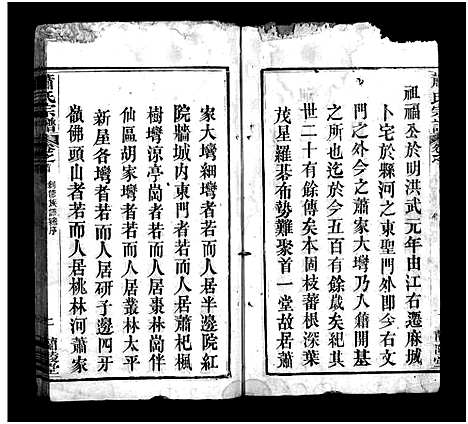 蕭氏宗譜
卷之首
祖福公於明洪武元年由江右遷麻城
卜宅於縣河之東聖門外即今古東
門之外之蕭家大塆乃入籍開基
之所也迄於今五百有餘歲矣紀其
世二十有餘傳矣本固枝蕃根深葉
茂星羅碁布勢難聚首一堂故居蕭
一 蘭陵堂
家大塆細塆者若而人居半邊院紅
院牆城内東門者若而人居蕭杞楓
樹塆涼亭崗者若而人居栗林崗伴
仙區胡家塆者若而人居叢林太平
新屋各塆者若而人居研子邊四牙
嶺佛頭山者若而人居桃林河蕭家
蕭氏宗譜
卷之首
創修族譜總序
二 蘭陵堂